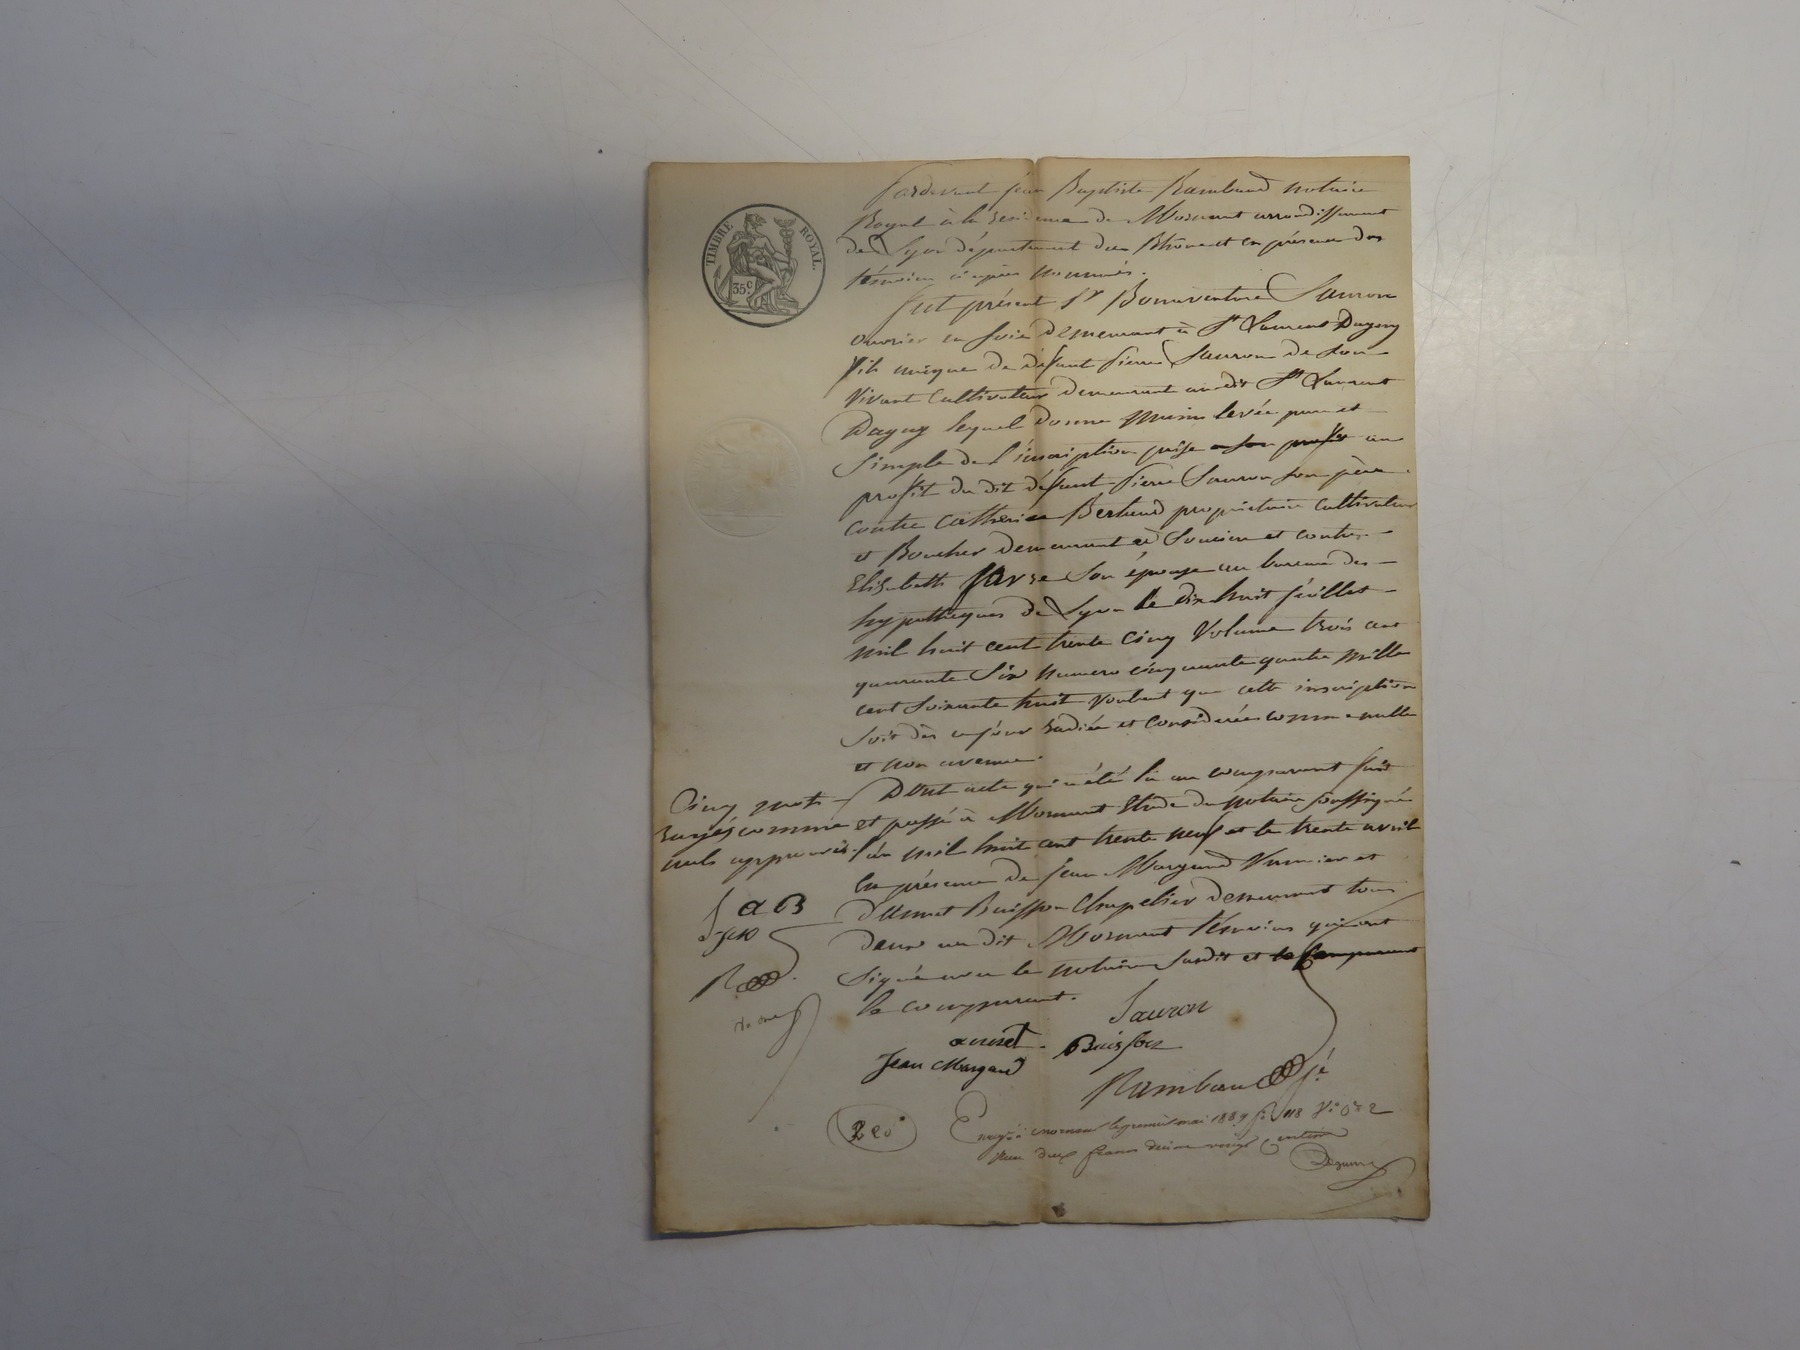 TIMBRE ROYAL.
35c.
Pardevant Jean Baptiste Rambaud notaire
Royal à la residence de Mornant arrondissement
de Lyon département du Rhône et en présence des
témoins ci après nommés.
fut présent Sr Bonaventure Sauron
ouvrier en soie demeurant à St Laurent Dagny
fils unique de défunt Pierre Sauron de son
vivant cultivateur demeurant au dit St Laurent
Dagny lequel donne main levée pure et
simple de l'inscription prise a son profit au
profit du dit défunt Pierre Sauron son père
contre Bertrand propriétaire cultivateur
et Boucher demeurant à Soucieu et contre
Elisabeth son épouse au bureau des
hypothèques de Lyon le dix huit juillet
mil huit cent trente cinq volume trois cent
quarante six numero cinquante quatre mille
cent soixante huit voulant que cette inscription
soit dès ce jour radiée et considérée comme nulle
et non avenue.
Dont acte qui a été lu au comparant fait
et passé à Mornant Etude du notaire soussigné
l'an mil huit cent trente neuf et le trente avril
en présence de Jean Margand et
d'Annet Buisson Chapelier demeurant tous
deux au dit Mornant témoins qui ont
signé avec le notaire susdit et le Comparant
le comparant.
Cinq mots
rayés comme
nuls approuvés.
a B
R
Sauron
annet Buisson
Jean Margand
Rambaud
220
Enregé à mornant le premier mai 1839 118
Reçu deux francs décime vingt centimes